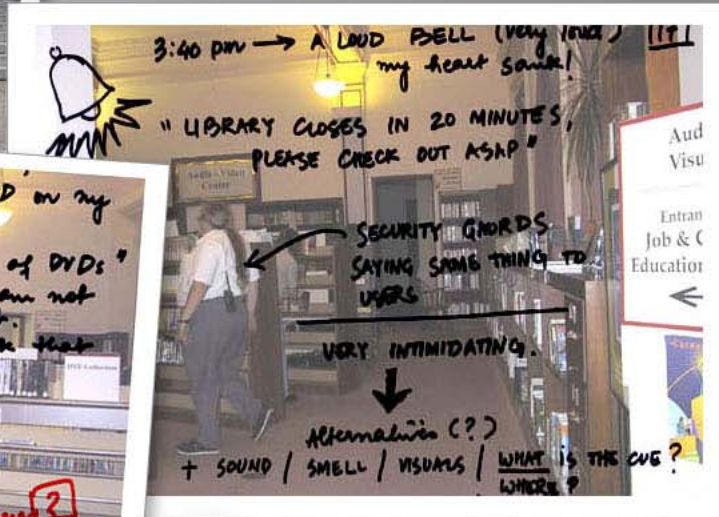 3:40 pm → A LOUD BELL (very loud)
my heart sank!
" LIBRARY CLOSES IN 20 MINUTES,
PLEASE CHECK OUT ASAP "
Audio-Video
Centre
SECURITY GAURDS
SAYING SAME THING TO
USERS
VERY INTIMIDATING.
Alternatives (?)
+ SOUND / SMELL / VISUALS / WHAT is THE CUE ?
WHERE ?
Aud
Visu
Entran
Job & C
Education
on my
of DVDs "
am not
that
DVD Collection
?